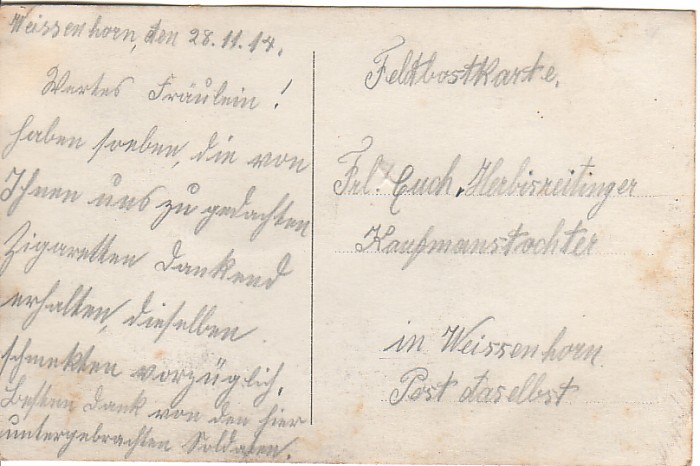 Weissenhorn, den 28.11.14.
Wertes Fräulein!
haben soeben, die von
Ihnen uns zu gedachten
Zigaretten dankend
erhalten, dieselben
schmekten vorzüglich.
Besten Dank von den hier
untergebrachten Soldaten.
Feldbostkarte.
Frl. Euch. Herbisreitinger
Kaufmanstochter
in Weissenhorn
Post daselbst